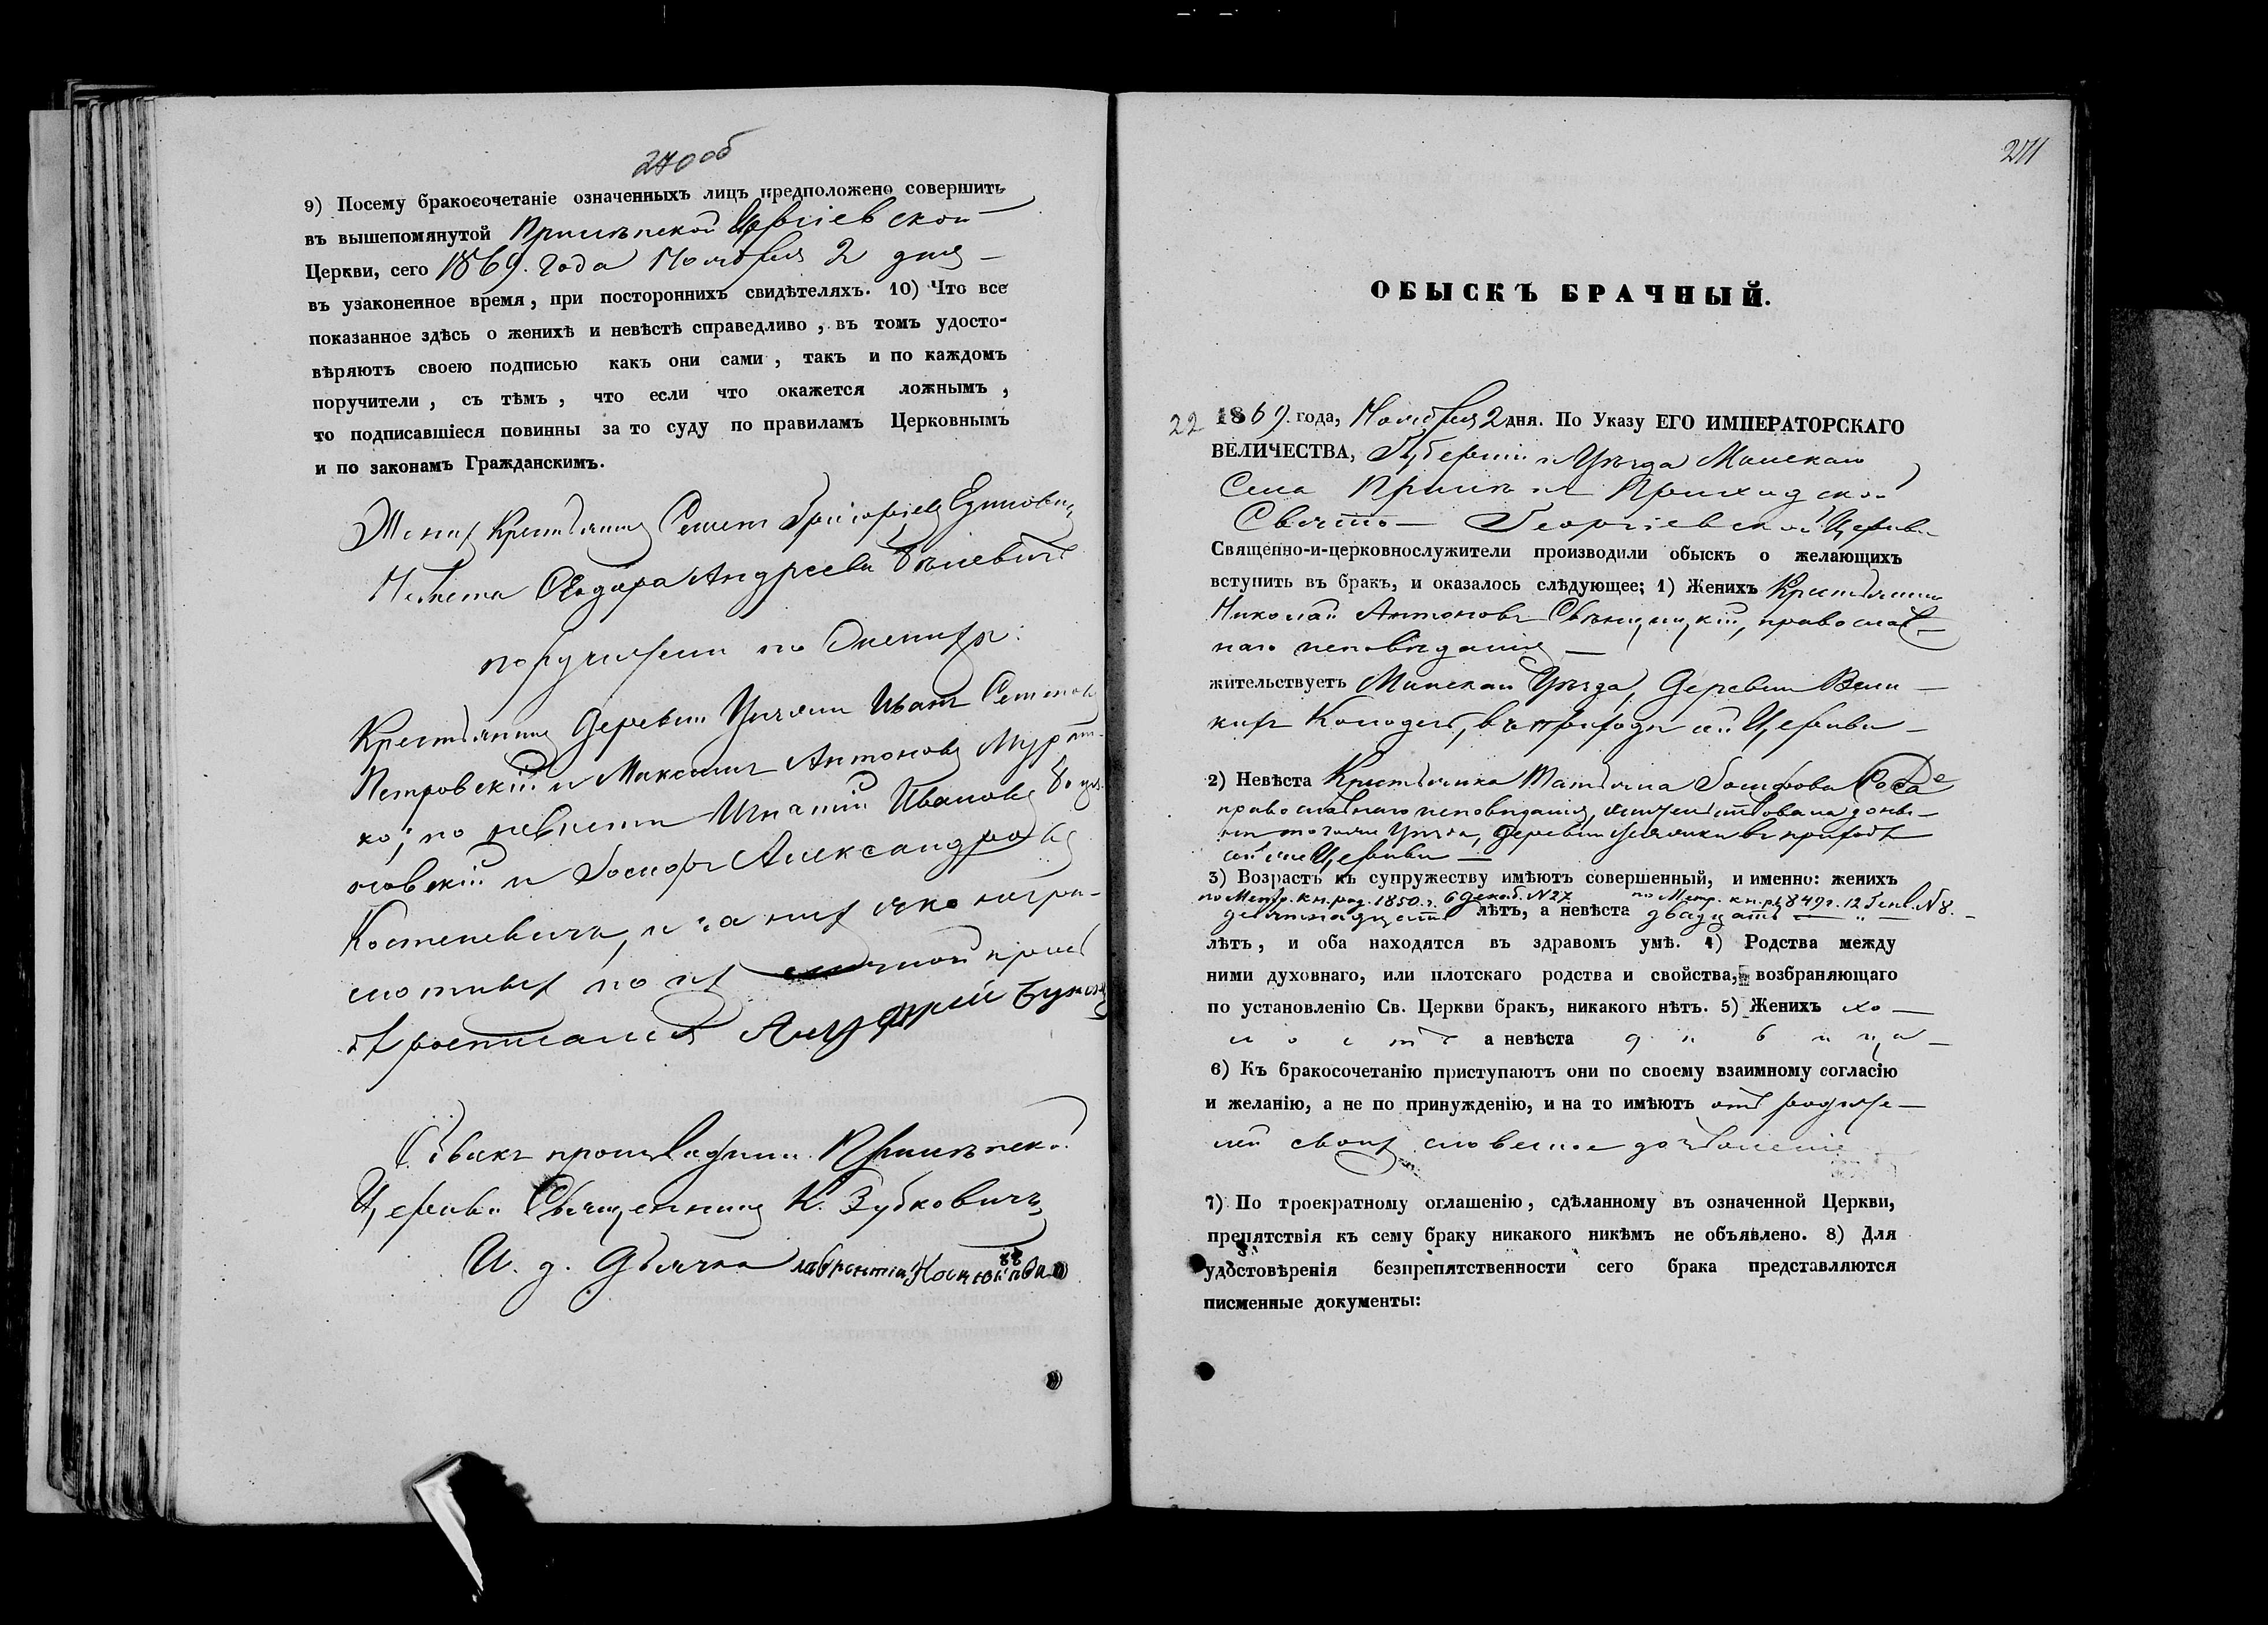 270 об
9) Посему бракосочетаніе означенныхъ лицъ предположено совершить
въ вышепомянутой Прилѣпской Георгіевской
Церкви, сего 1869. года Ноября 2 дня
въ узаконенное время, при постороннихъ свидѣтеляхъ. 10) Что все
показанное здѣсь о женихѣ и невѣстѣ справедливо, въ томъ удосто-
вѣряютъ своею подписью какъ они сами, такъ и по каждомъ
поручители, съ тѣмъ, что если что окажется ложнымъ,
то подписавшіеся повинны за то суду по правиламъ Церковнымъ
и по законамъ Гражданскимъ.
Женихъ Крестьянинъ Григоріевъ
Невѣста Ѳеодора Андреева
поручители по женихѣ:
Крестьянинъ деревни Иванъ
Петровскій и Максимъ Антоновъ
ко; по невѣстѣ Игнатій Ивановъ
и Іосифъ Александровъ
Костеневичъ, и за нихъ яко негра-
мотныхъ по ихъ личной прось
бѣ росписался Андрей
Обыскъ производили Прилѣпской
Церкви Священникъ К. Зубковичъ
И. д. Дьячка Лаврентій
271
ОБЫСКЪ БРАЧНЫЙ.
22 1869. года, Ноября 2 дня. По Указу ЕГО ИМПЕРАТОРСКАГО
ВЕЛИЧЕСТВА, Губерніи и Уѣзда Минскаго
Села Прилѣпъ Приходской
Свято- Георгіевской Церкви
Священно-и-церковнослужители производили обыскъ о желающихъ
вступить въ бракъ, и оказалось слѣдующее; 1) Женихъ Крестьянинъ
Николай Антоновъ православ-
наго исповѣданія
жительствуетъ Минскаго Уѣзда, деревни Вели-
кихъ въ приходѣ сей Церкви
2) Невѣста Крестьянка Татьяна Іосифова
православнаго исповѣданія, жительствовала донынѣ
тогоже Уѣзда, деревни въ приходѣ
сей же Церкви
3) Возрастъ къ супружеству имѣютъ совершенный, и именно: женихъ
по Метр. кн. род. 1850. г. 6 Декаб. N 27. по Метр. кн. р. 1849 г. 12 Генв. N 8.
девятнадцать лѣтъ, а невѣста двадцать
лѣтъ, и оба находятся въ здравомъ умѣ. 4) Родства между
ними духовнаго, или плотскаго родства и свойства, возбраняющаго
по установленію Св. Церкви бракъ, никакого нѣтъ. 5) Женихъ хо-
лостъ а невѣста дѣвица
6) Къ бракосочетанію приступаютъ они по своему взаимному согласію
и желанію, а не по принужденію, и на то имѣютъ отъ родите-
лей своихъ словесное дозволеніе
7) По троекратному оглашенію, сдѣланному въ означенной Церкви,
препятствія къ сему браку никакого никѣмъ не объявлено. 8) Для
удостовѣренія безпрепятственности сего брака представляются
писменные документы: